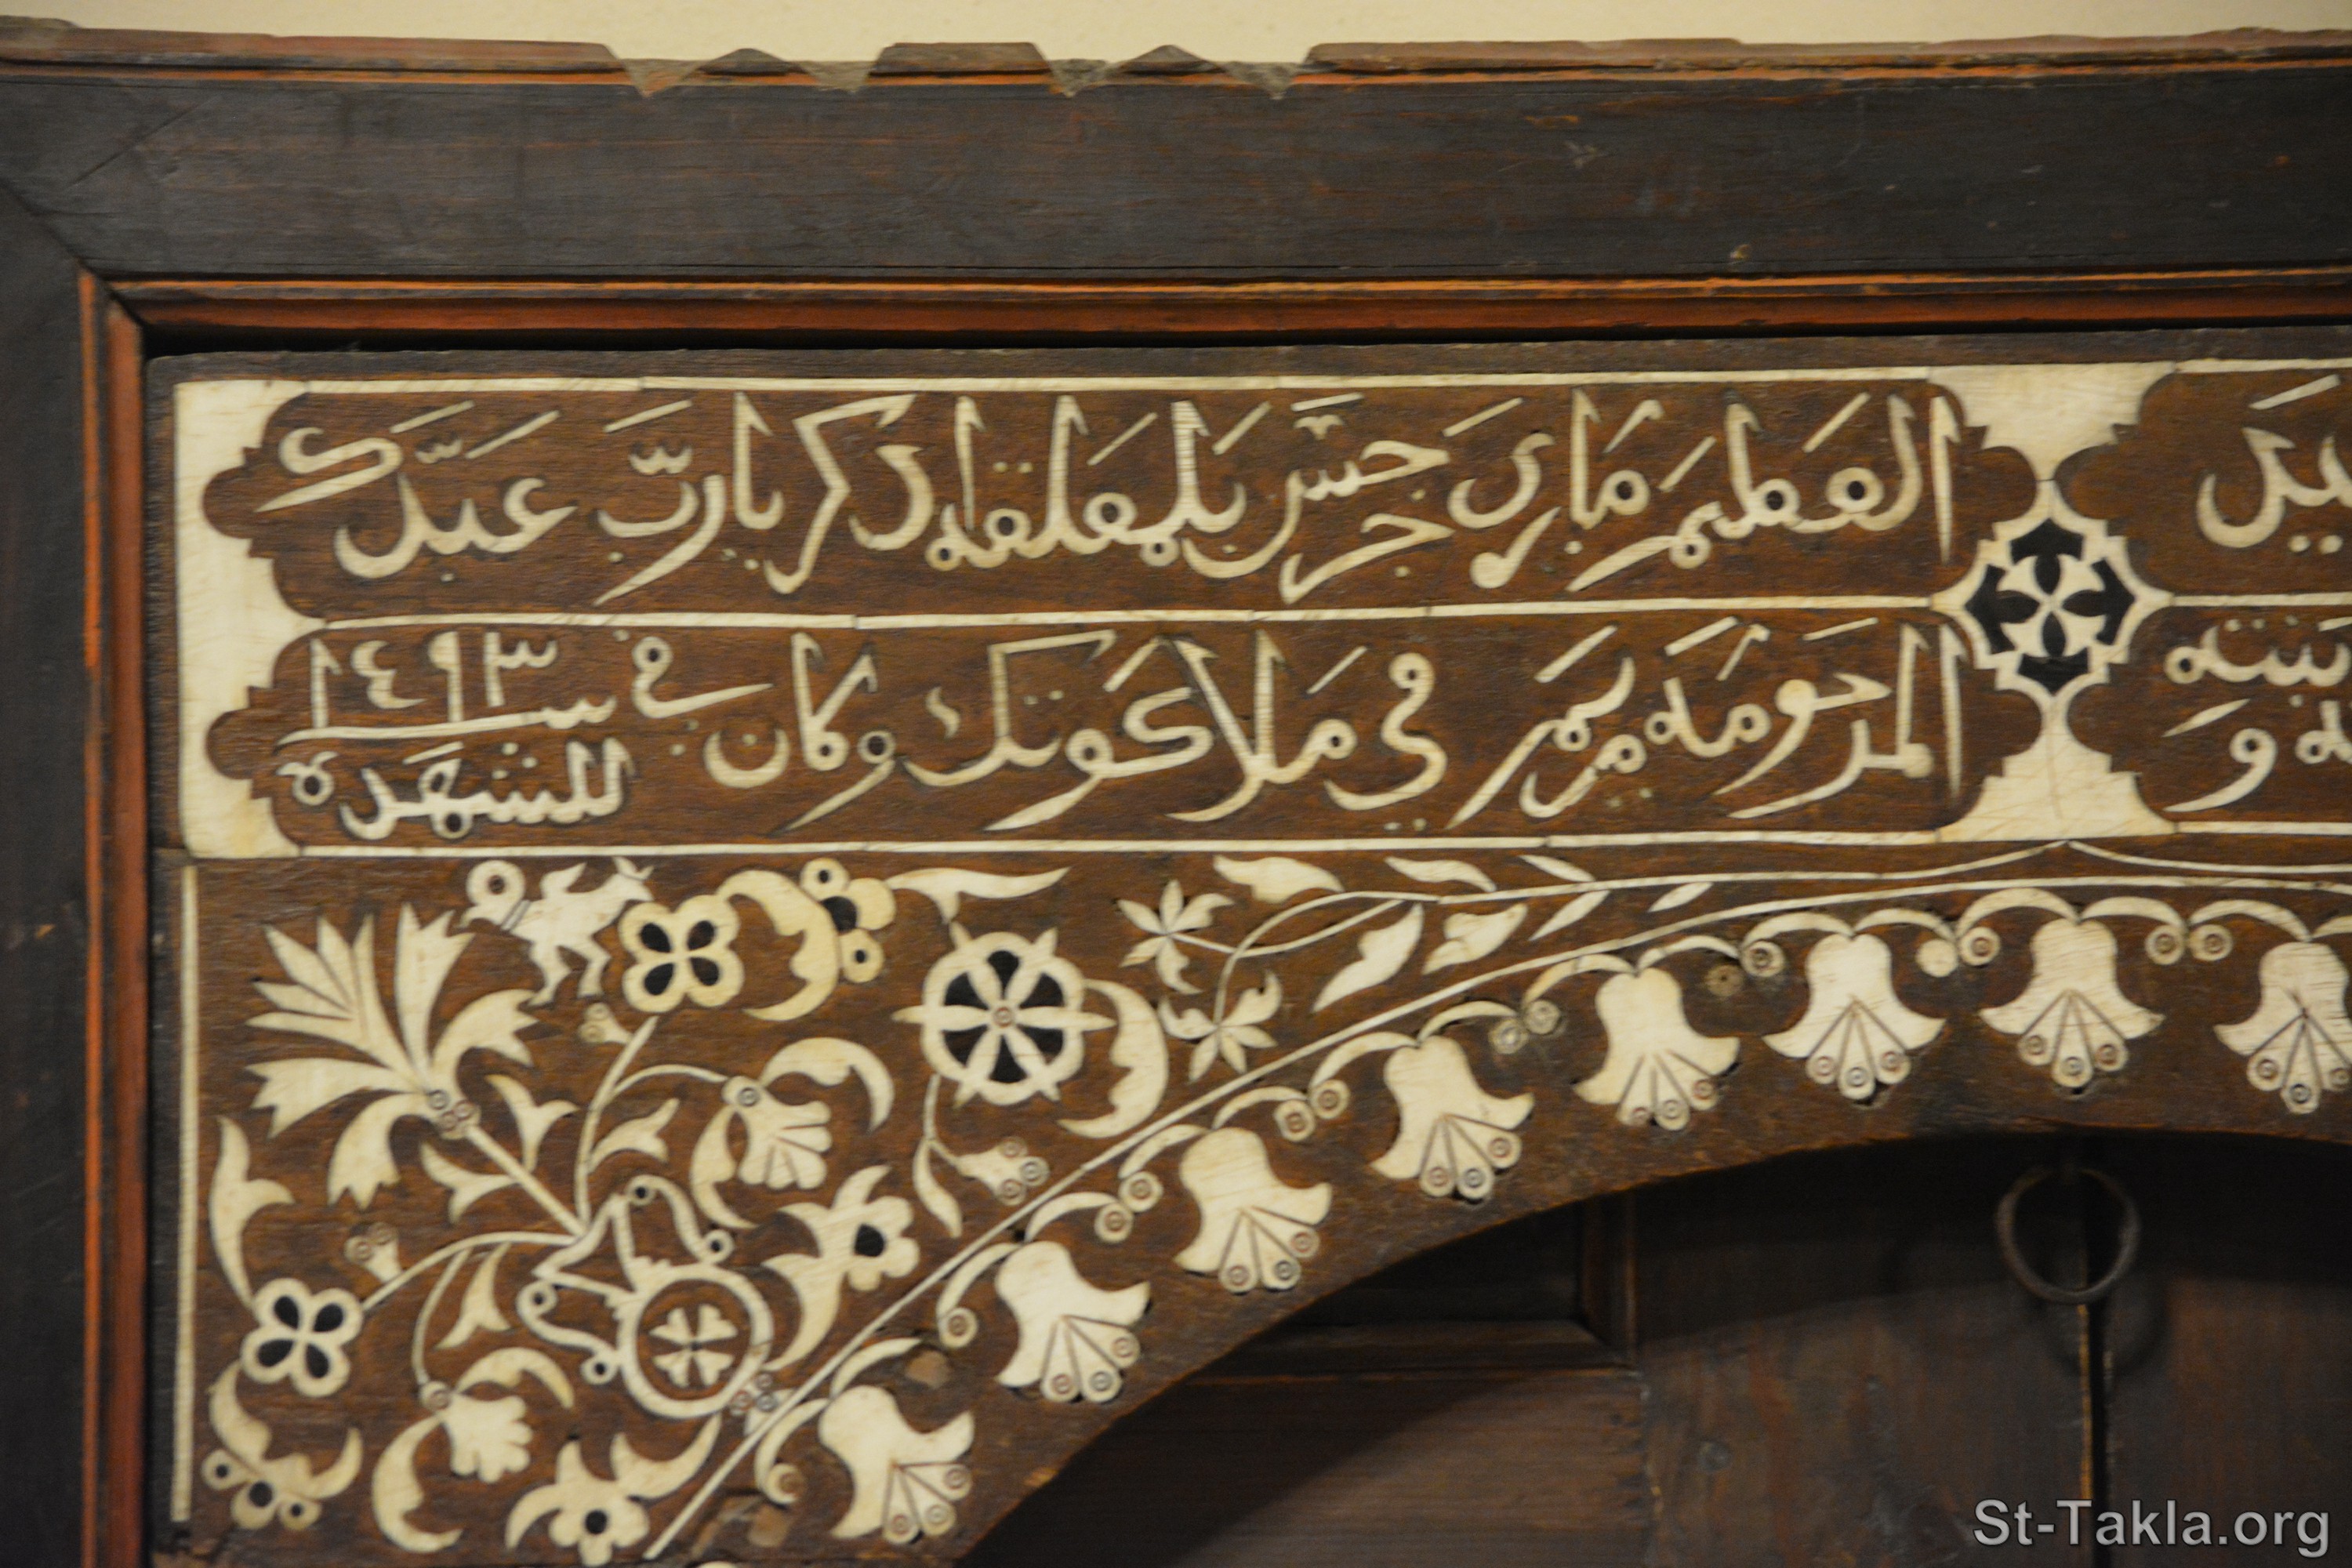 العظيم مارى جرجس بلمعلقه اذكر يارب عبدك
و المرحومه مريم في ملاكوتك وكان في سنة ١٤٩٣ للشهده
St-Takla.org